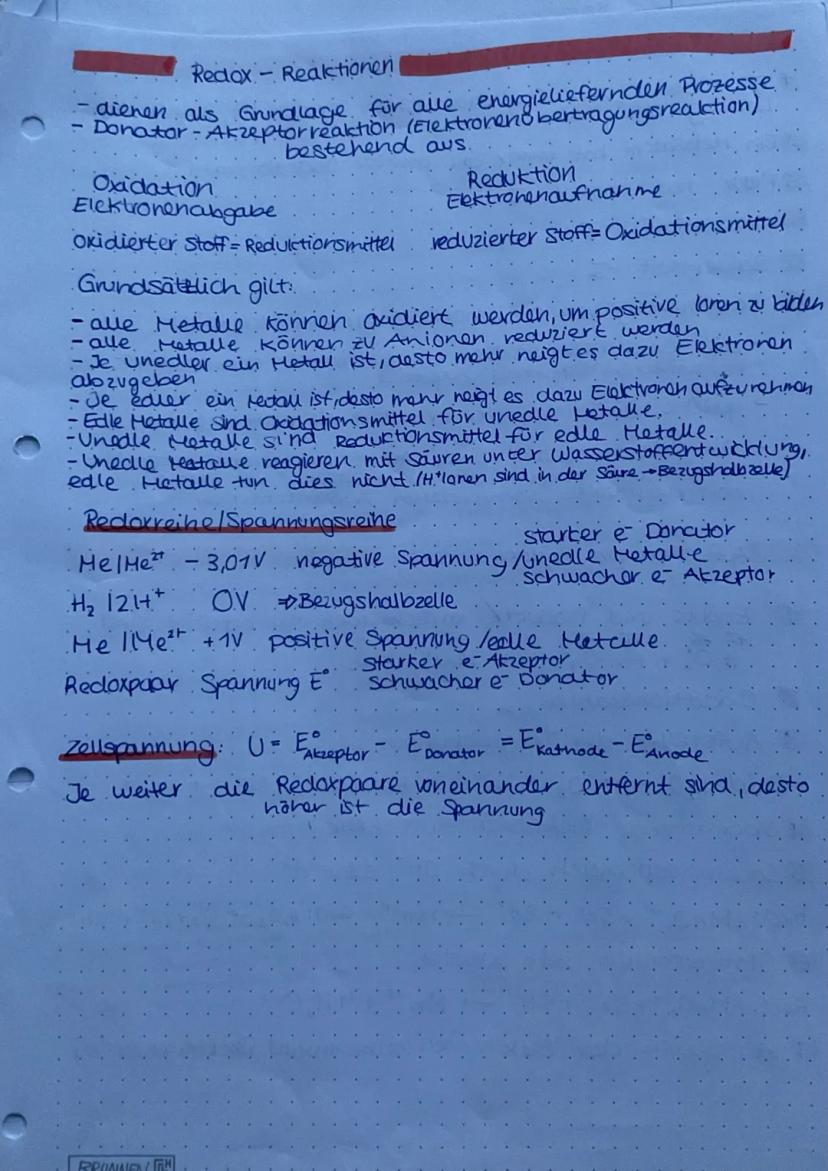 Redox - Reaktionen
- dienen als Grundlage für alle energieliefernden Prozesse
- Donator - Akzeptorreaktion (Elektronenübertragungsreaktion)
bestehend aus
Oxidation Reduktion
Elektronenabgabe Elektronenaufnahme
oxidierter Stoff = Reduktionsmittel reduzierter Stoff = Oxidationsmittel
Grundsätzlich gilt:
- alle Metalle können oxidiert werden, um positive Ionen zu bilden
- alle Metalle können zu Anionen reduziert werden
- Je unedler ein Metall ist, desto mehr neigt es dazu Elektronen
abzugeben
- Je edler ein Metall ist, desto mehr neigt es dazu Elektronen aufzunehmen
- Edle Metalle sind Oxidationsmittel für unedle Metalle.
- Unedle Metalle sind Reductionsmittel für edle Metalle.
- Unedle Metalle reagieren mit Säuren unter Wasserstoffentwicklung,
edle Metalle tun dies nicht (H⁺Ionen sind in der Säure → Bezugshalbzelle)
Redoxreihe/Spannungsreihe
starker e⁻ Donator
Me/Me²⁺ - 3,01V negative Spannung/unedle Metalle
schwacher e⁻ Akzeptor
H₂ 12H⁺ 0V ⇒ Bezugshalbzelle
Me/Me²⁺ +1V positive Spannung/edle Metalle
starker e⁻ Akzeptor
Redoxpaar Spannung E° schwacher e⁻ Donator
Zellspannung: U = E°Akzeptor - E°Donator = E°Kathode - E°Anode
Je weiter die Redoxpaare voneinander entfernt sind, desto
höher ist die Spannung
BRUNNEN